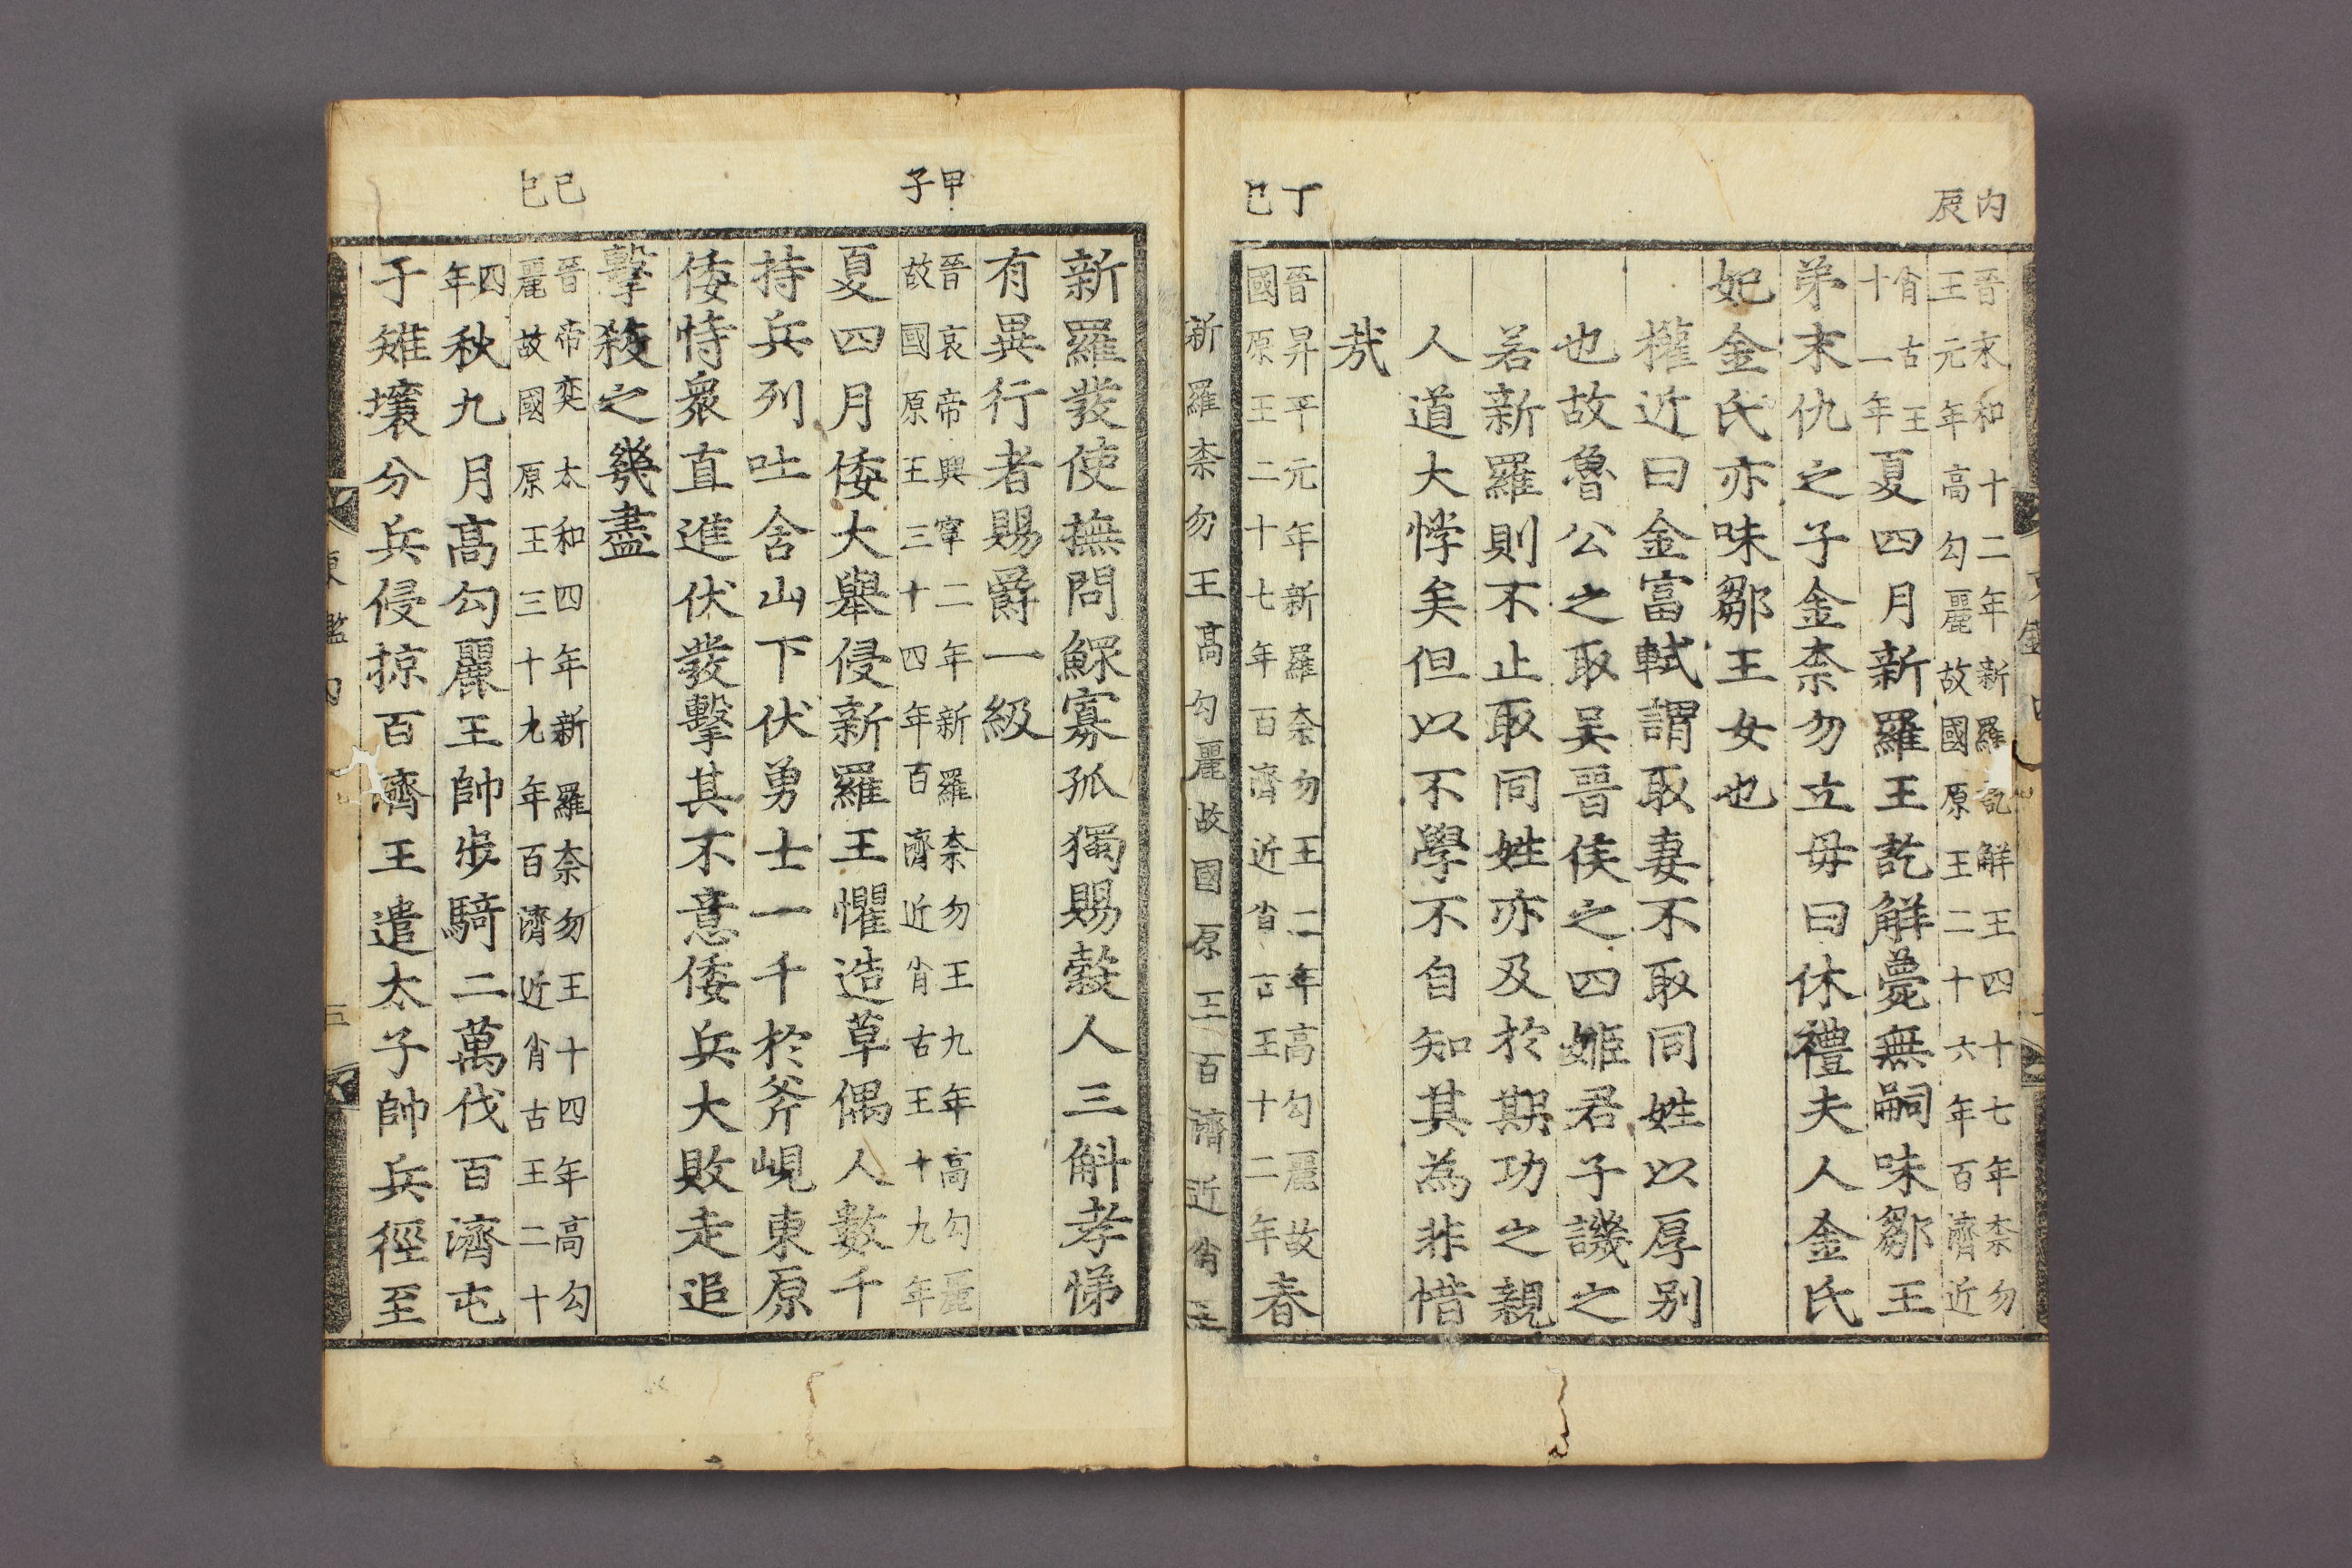 丙辰
晉永和十二年新羅訖解王四十七年柰勿
王元年高勾麗故國原王二十六年百濟近
肖古王
十一年
夏四月新羅王訖解薨無嗣味鄒王
弟末仇之子金柰勿立毋曰休禮夫人金氏
妃金氏亦味鄒王女也
權近曰金富軾謂取妻不取同姓以厚别
也故魯公之取吴晉侯之四姬君子譏之
若新羅則不止取同姓亦及於期功之親
人道大悖矣但以不學不自知其為非惜
㢤
丁巳
晉昇平元年新羅柰勿王二年高勾麗故
國原王二十七年百濟近肖古王十二年
春
新羅柰勿王高勾麗故國原王百濟近肖王
新羅發使撫問鰥寡孤獨賜穀人三斛孝悌
有異行者賜爵一級
甲子
晉哀帝興寧二年新羅柰勿王九年高勾麗
故國原王三十四年百濟近肖古王十九年
夏四月倭大舉侵新羅王懼造草偶人數千
持兵列吐含山下伏勇士一千於斧峴東原
倭恃衆直進伏發擊其不意倭兵大敗走追
擊殺之幾盡
己巳
晉帝奕太和四年新羅柰勿王十四年高勾
麗故國原王三十九年百濟近肖古王二十
四年
秋九月髙勾麗王帥步騎二萬伐百濟屯
于雉壤分兵侵掠百濟王遣太子帥兵徑至